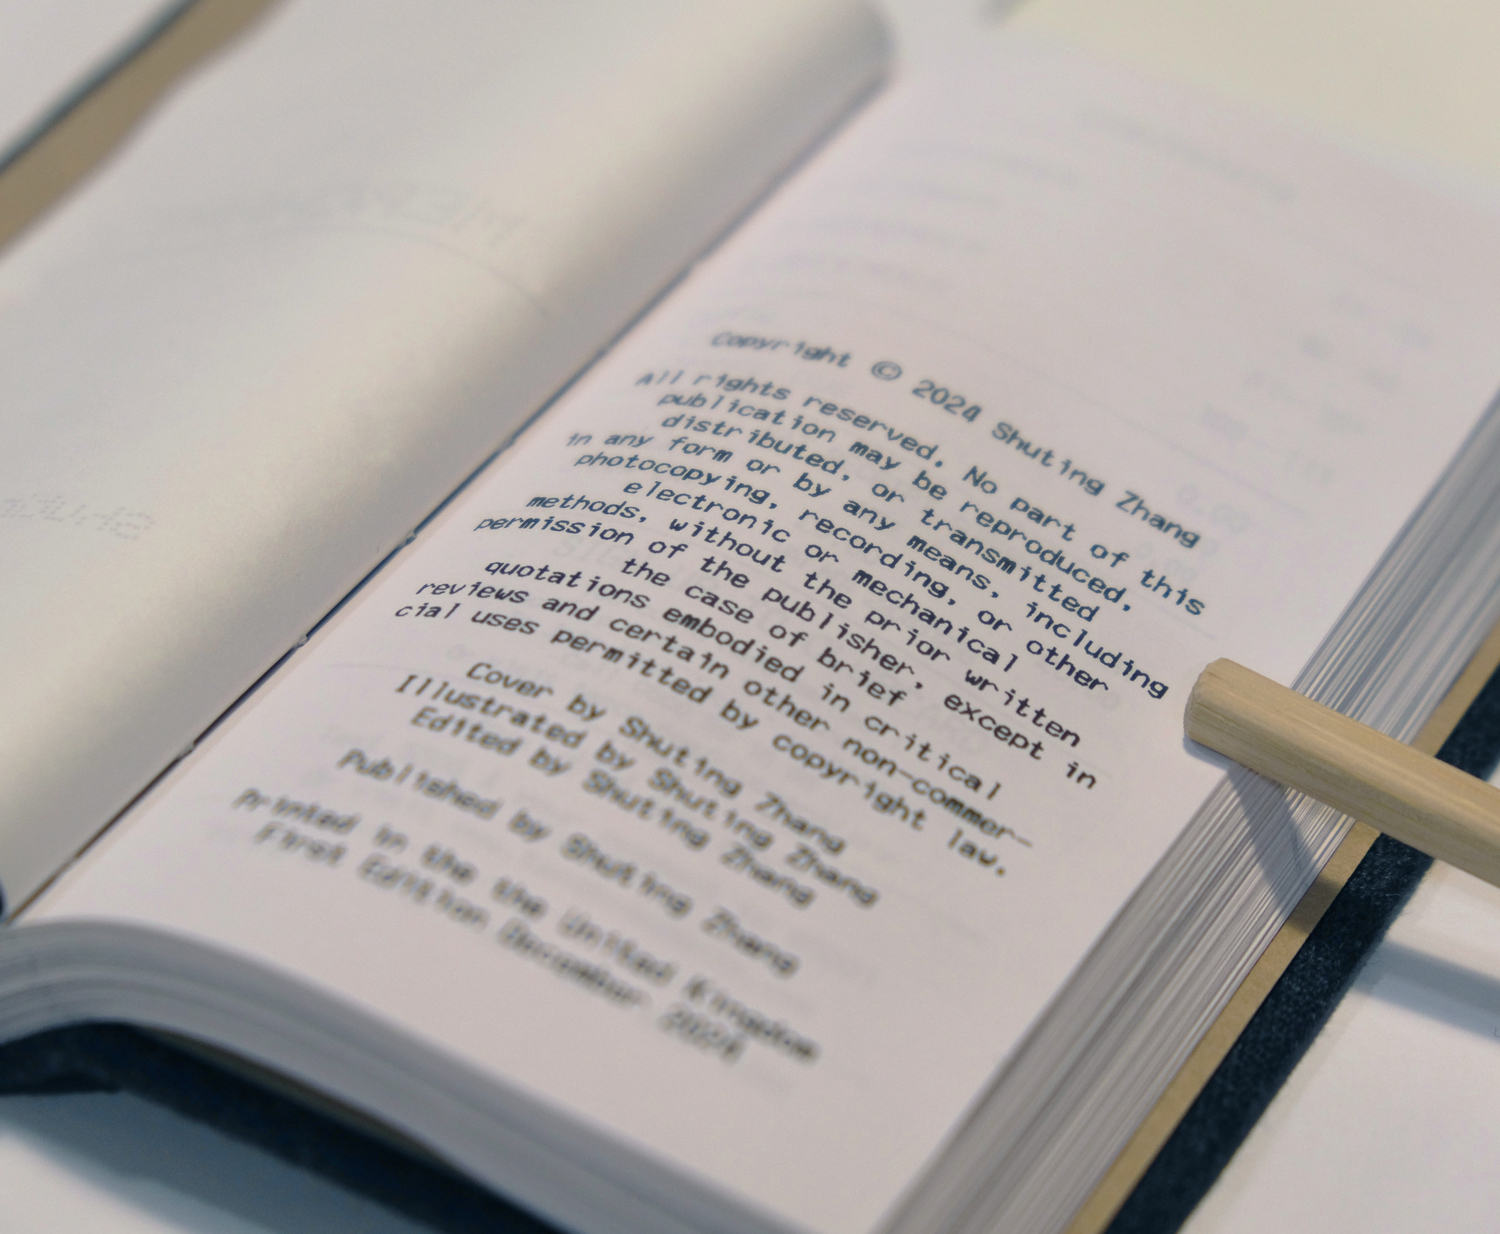 Copyright © 2024 Shuting Zhang
All rights reserved. No part of this
publication may be reproduced,
distributed, or transmitted
in any form or by any means, including
photocopying, recording, or other
electronic or mechanical
methods, without the prior written
permission of the publisher, except in
the case of brief
quotations embodied in critical
reviews and certain other non-commer-
cial uses permitted by copyright law.
Cover by Shuting Zhang
Illustrated by Shuting Zhang
Edited by Shuting Zhang
Published by Shuting Zhang
Printed in the the United Kingdom
First Edition December 2024